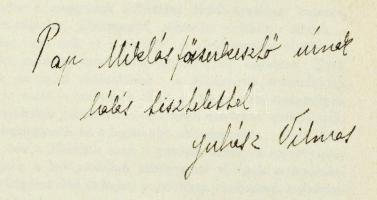 Pap Miklós főszerkesztő úrnak
hálás tisztelettel
Juhász Vilmos